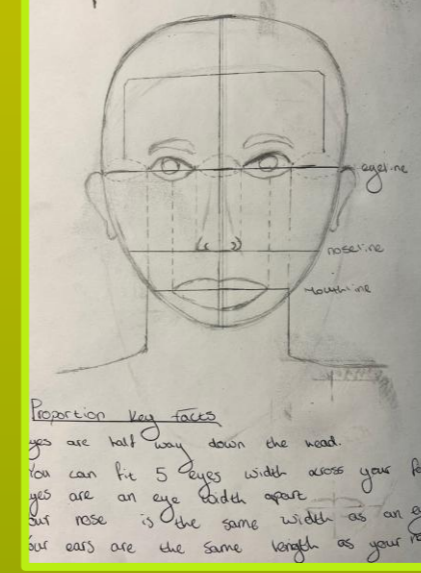 eyeline
noseline
mouthline
Proportion Key facts
yes are half way down the head.
You can fit 5 eyes width across your fa
yes are an eye width apart
our nose is the same width as an ey
our ears are the same length as your no